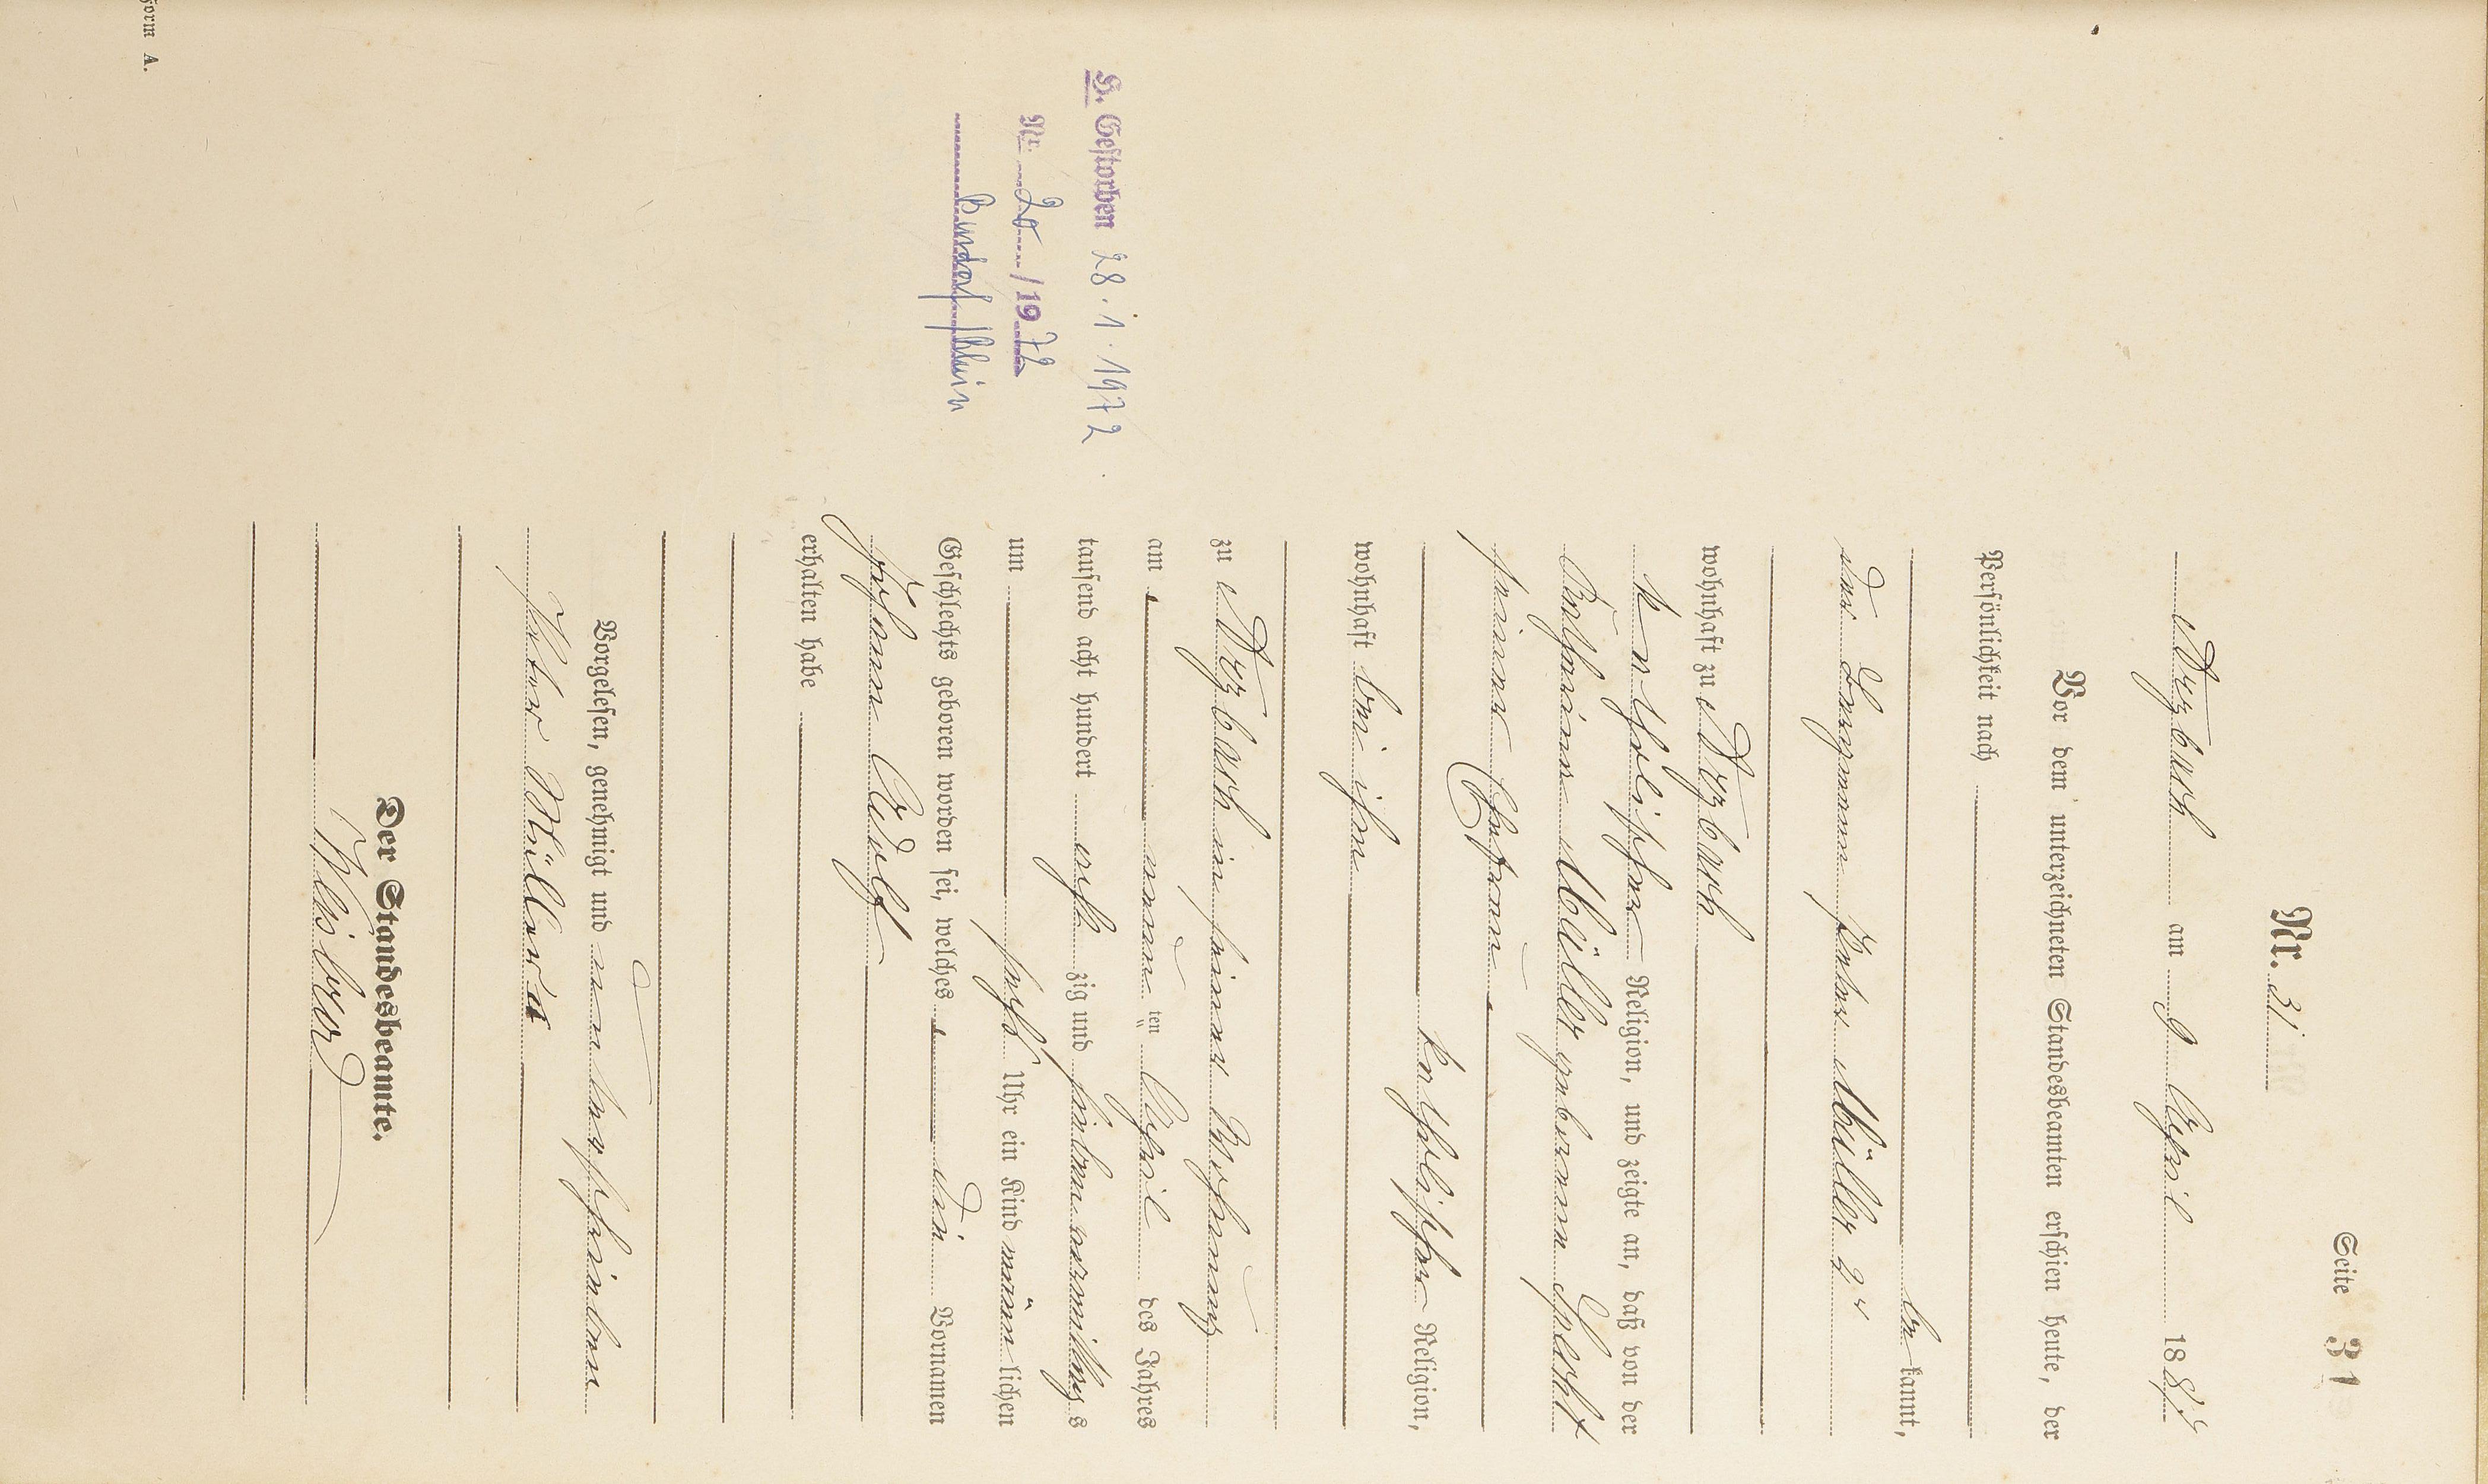 Seite 31
Nr. 31
Arzbach am 9 April 1887
Vor dem unterzeichneten Standesbeamten erschien heute, der
Persönlichkeit nach
be kannt,
der Bergmann Peter Müller 2r
wohnhaft zu Arzbach
katholischer Religion, und zeigte an, daß von der
Catharina Müller geborenen Specht
seiner Ehefrau
katholischer Religion,
wohnhaft bei ihm
zu Arzbach in seiner Wohnung
am neunten April des Jahres
tausend acht hundert acht zig und sieben vormittag s
um sechs Uhr ein Kind männ lichen
Geschlechts geboren worden sei, welches die Vornamen
Johann Adolf
erhalten habe
Vorgelesen, genehmigt und unterschrieben
Peter Müller
Der Standesbeamte.
H. Gestorben 28. 1. 1972
Nr. 20 / 1972
Form A.